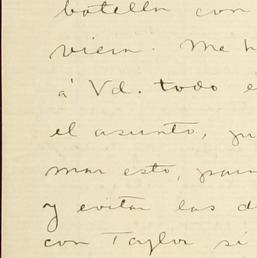 botella con
viera. Me h
á Vd. todo e
el asunto, pu
mar esto, para
y evitar las d
con Taylor si